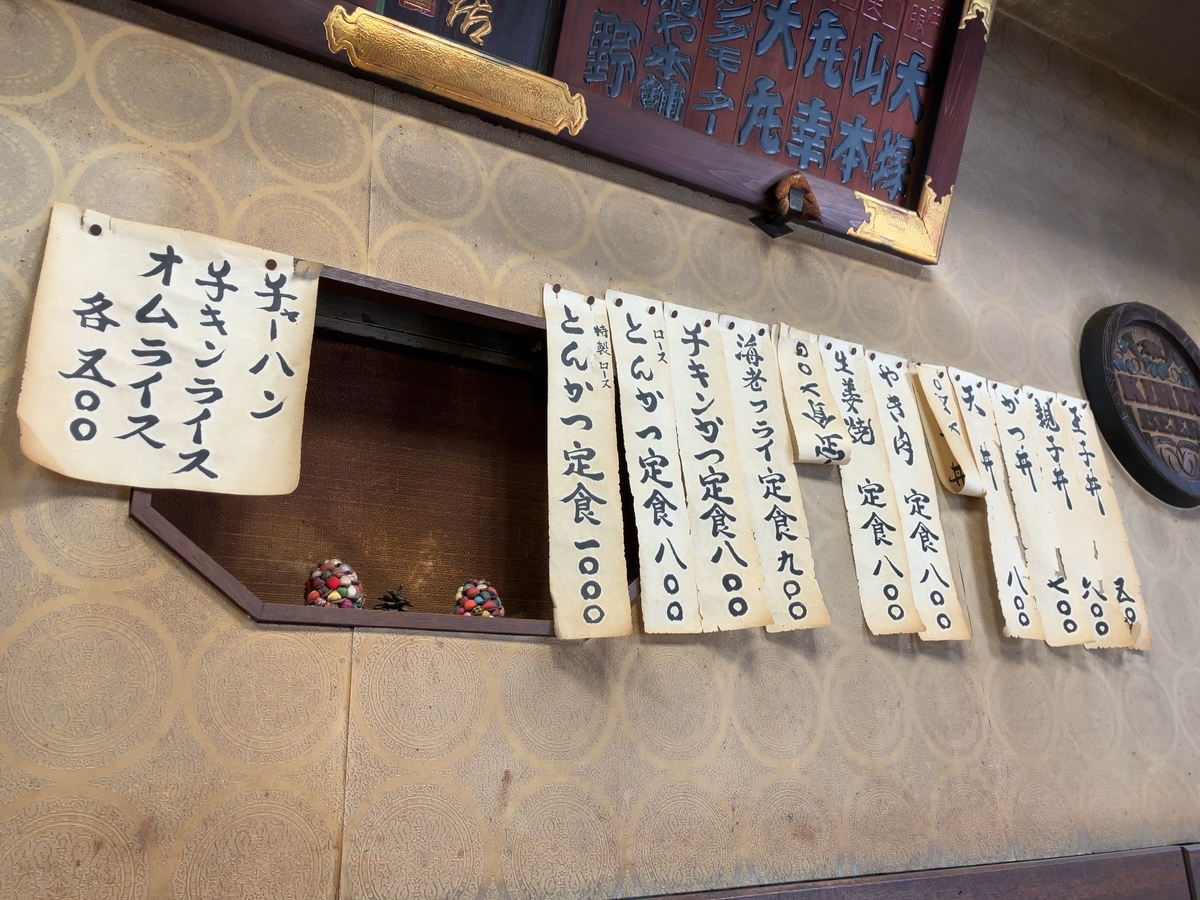 大塚
山本
丸幸
大丸
ンダモーター
本舗
野
玉子丼 五〇
親子丼 六〇〇
かつ丼 七〇〇
天丼 八〇〇
やき肉定食 八〇〇
生姜焼定食 八〇〇
海老フライ定食 九〇〇
チキンかつ定食 八〇〇
ロースとんかつ定食 八〇〇
特製ロースとんかつ定食 一〇〇〇
チャーハン
チキンライス
オムライス
各五〇〇